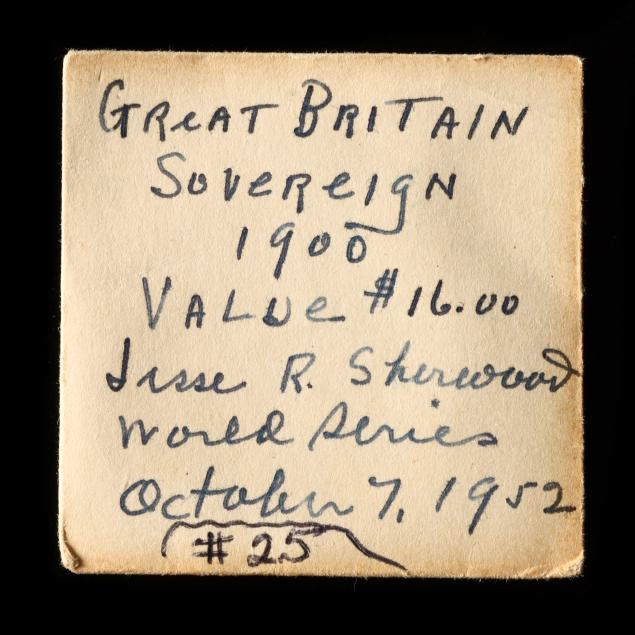 GReAT BRITAIN
SOVEReIgN
1900
VALUe $16.00
Jesse R. Sherwood
World Series
October 7, 1952
# 25